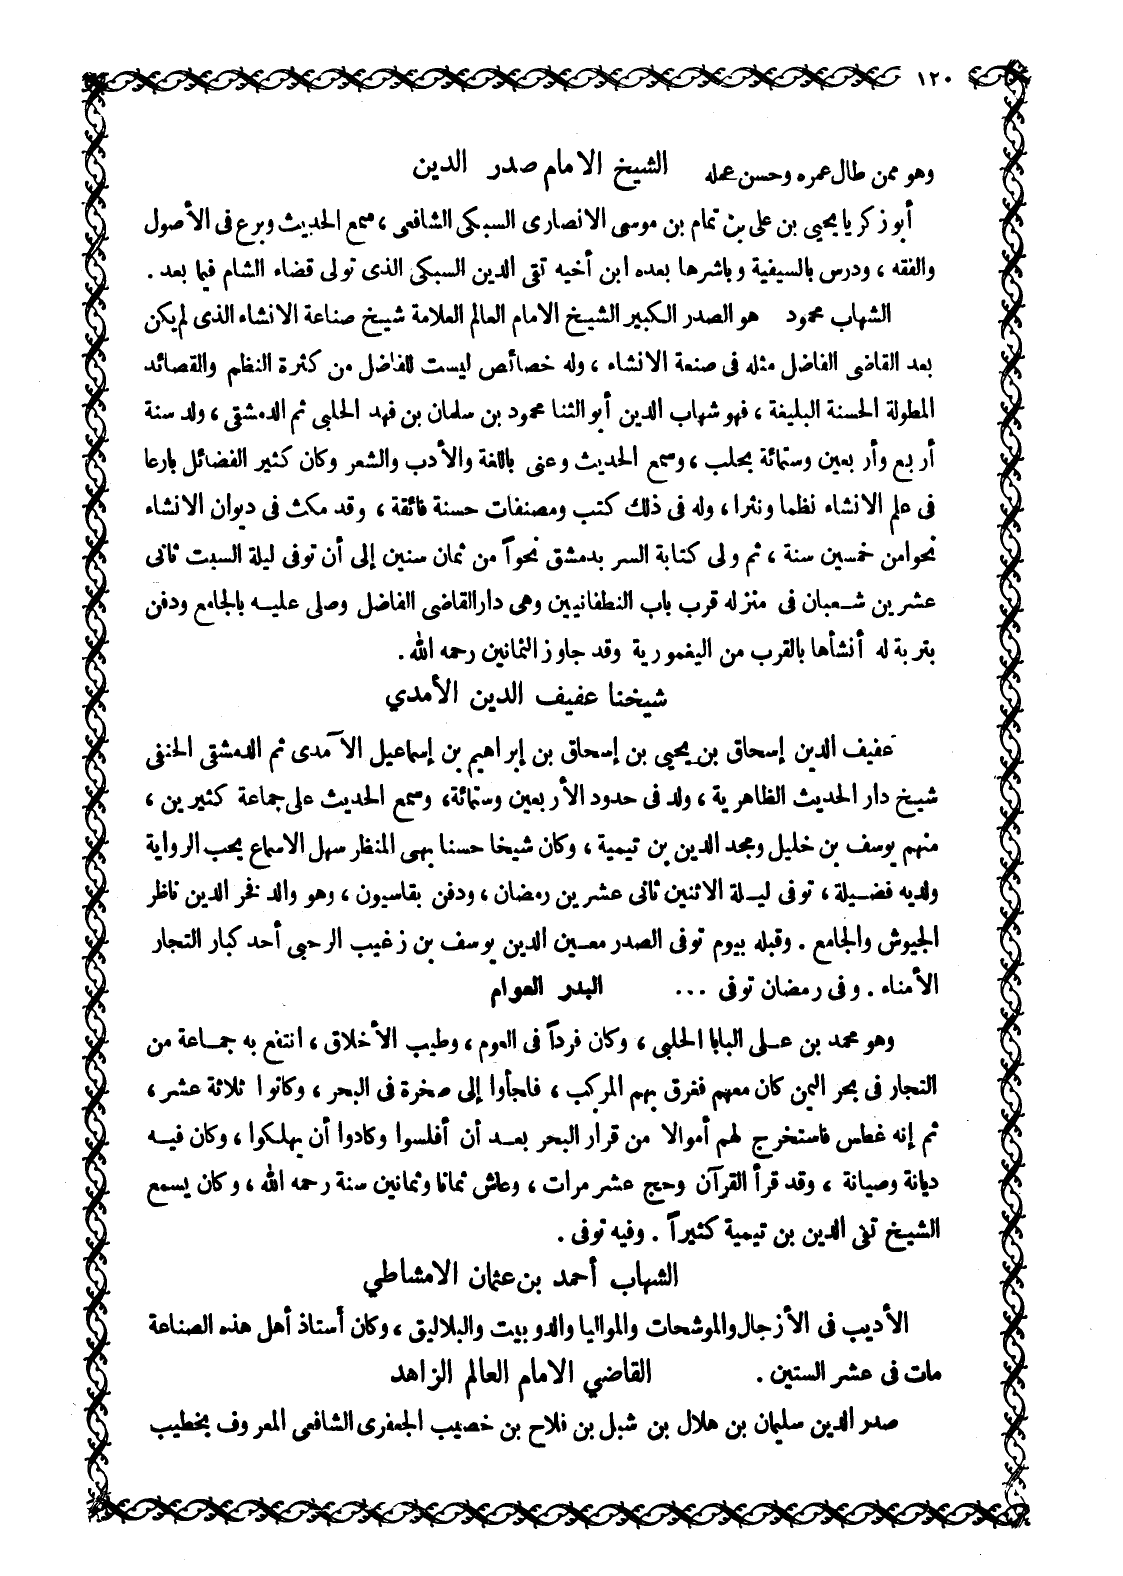 ١٢٠
وهو ممن طال عمره وحسن عمله الشيخ الامام صدر الدين
أبو زكريا يحيى بن على بن تمام بن موسى الانصارى السبكى الشافعى ، سمع الحديث وبرع فى الأصول
والفقه ، ودرس بالسيفية وباشرها بعده ابن أخيه تقى الدين السبكى الذى تولى قضاء الشام فيما بعد .
الشهاب محمود هو الصدر الكبير الشيخ الامام العالم العلامة شيخ صناعة الانشاء الذى لم يكن
بعد القاضى الفاضل مثله فى صنعة الانشاء ، وله خصائص ليست للفاضل من كثرة النظم والقصائد
المطولة الحسنة البليغة ، فهو شهاب الدين أبو الثنا محمود بن سلمان بن فهد الحلبى ثم الدمشقى ، ولد سنة
أربع وأربعين وستمائة بحلب ، وسمع الحديث وعنى باللغة والأدب والشعر وكان كثير الفضائل بارعا
فى علم الانشاء نظما ونثرا ، وله فى ذلك كتب ومصنفات حسنة فائقة ، وقد مكث فى ديوان الانشاء
نحوا من خمسين سنة ، ثم ولى كتابة السر بدمشق نحواً من ثمان سنين إلى أن توفى ليلة السبت ثانى
عشرين شعبان فى منزله قرب باب النطفانيين وهى دار القاضى الفاضل وصلى عليه بالجامع ودفن
بتربة له أنشأها بالقرب من اليغمورية وقد جاوز الثمانين رحمه الله .
شيخنا عفيف الدين الأمدي
عفيف الدين إسحاق بن يحيى بن إسحاق بن إبراهيم بن إسماعيل الآمدى ثم الدمشقى الحنفى
شيخ دار الحديث الظاهرية ، ولد فى حدود الأربعين وستمائة ، وسمع الحديث على جماعة كثيرين ،
منهم يوسف بن خليل ومجد الدين بن تيمية ، وكان شيخا حسنا بهى المنظر سهل الاسماع يحب الرواية
ولديه فضيلة ، توفى ليلة الاثنين ثانى عشرين رمضان ، ودفن بقاسيون ، وهو والد فخر الدين ناظر
الجيوش والجامع . وقبله بيوم توفى الصدر معين الدين يوسف بن زغيب الرحبى أحد كبار التجار
الأمناء . وفى رمضان توفى ... البدر العوام
وهو محمد بن على البابا الحلبى ، وكان فرداً فى العوم ، وطيب الأخلاق ، انتفع به جماعة من
التجار فى بحر اليمن كان معهم فغرق بهم المركب ، فلجأوا إلى صخرة فى البحر ، وكانوا ثلاثة عشر ،
ثم إنه غطس فاستخرج لهم أموالا من قرار البحر بعد أن أفلسوا وكادوا أن يهلكوا ، وكان فيه
ديانة وصيانة ، وقد قرأ القرآن وحج عشر مرات ، وعاش ثمانا وثمانين سنة رحمه الله ، وكان يسمع
الشيخ تقى الدين بن تيمية كثيراً . وفيه توفى .
الشهاب أحمد بن عثمان الامشاطي
الأديب فى الأزجال والموشحات والمواليا والدوبيت والبلاليق ، وكان أستاذ أهل هذه الصناعة
مات فى عشر الستين . القاضي الامام العالم الزاهد
صدر الدين سليمان بن هلال بن شبل بن فلاح بن خصيب الجعفرى الشافعى المعروف بخطيب